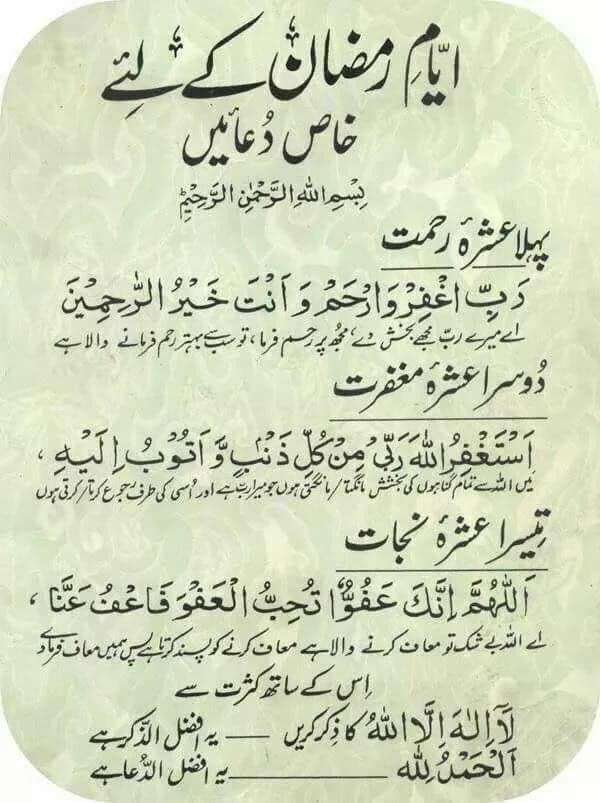 ایّامِ رمضان کے لئے
خاص دُعائیں
بِسْمِ اللہِ الرَّحْمٰنِ الرَّحِیْمِ
پہلا عشرۂ رحمت
رَبِّ اغْفِرْ وَارْحَمْ وَاَنْتَ خَيْرُ الرّٰحِمِيْنَ
اے میرے ربّ مجھے بخش دے، مجھ پر رحم فرما، تو سب سے بہتر رحم فرمانے والا ہے
دُوسرا عشرۂ مغفرت
اَسْتَغْفِرُ اللّٰهَ رَبِّىْ مِنْ كُلِّ ذَنْۢبٍ وَّاَتُوْبُ اِلَيْهِ ،
میں اللہ سے تمام گناہوں کی بخشش مانگتا/مانگتی ہوں جو میرا رب ہے اور اُسی کی طرف رجوع کرتا/کرتی ہوں
تیسرا عشرۂ نجات
اَللّٰهُمَّ اِنَّكَ عَفُوٌّ تُحِبُّ الْعَفْوَ فَاعْفُ عَنَّا ،
اے اللہ بے شک تو معاف کرنے والا ہے معاف کرنے کو پسند کرتا ہے پس ہمیں معاف فرما دے
اِس کے ساتھ کثرت سے
لَآ اِلٰهَ اِلَّا اللّٰهُ کا ذِکر کریں ـــــ یہ افضل الذّکر ہے
اَلْحَمْدُ لِلّٰه ـــــــــــ یہ افضل الدُّعا ہے